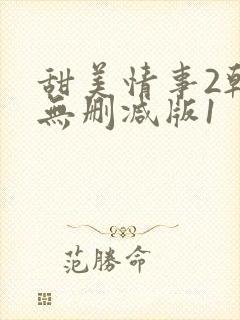 甜美情事2韩
無删减版1
范勝命